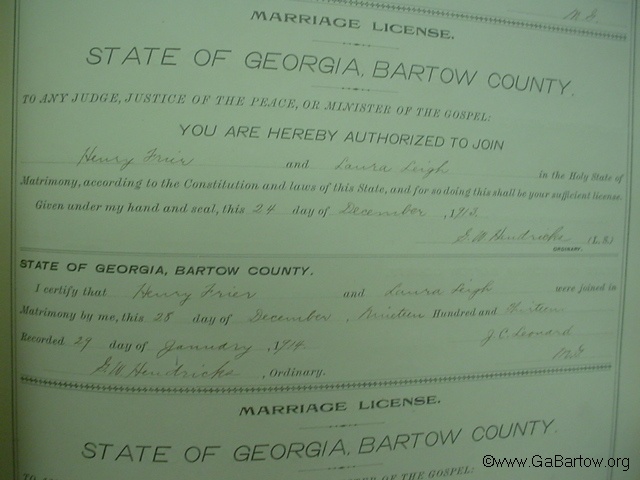 M. G.
MARRIAGE LICENSE.
STATE OF GEORGIA, BARTOW COUNTY.
TO ANY JUDGE, JUSTICE OF THE PEACE, OR MINISTER OF THE GOSPEL:
YOU ARE HEREBY AUTHORIZED TO JOIN
Henry Frier and Laura Leigh in the Holy State of
Matrimony, according to the Constitution and laws of this State, and for so doing this shall be your sufficient license.
Given under my hand and seal, this 24 day of December, 1913.
G. W. Hendricks (L. S.)
ORDINARY.
STATE OF GEORGIA, BARTOW COUNTY.
I certify that Henry Frier and Laura Leigh were joined in
Matrimony by me, this 28 day of December, Nineteen Hundred and Thirteen
J. C. Leonard
Recorded 29 day of January, 1914.
M G
G. W. Hendricks, Ordinary.
MARRIAGE LICENSE.
STATE OF GEORGIA, BARTOW COUNTY.
TO ANY MINISTER OF THE GOSPEL:
©www.GaBartow.org